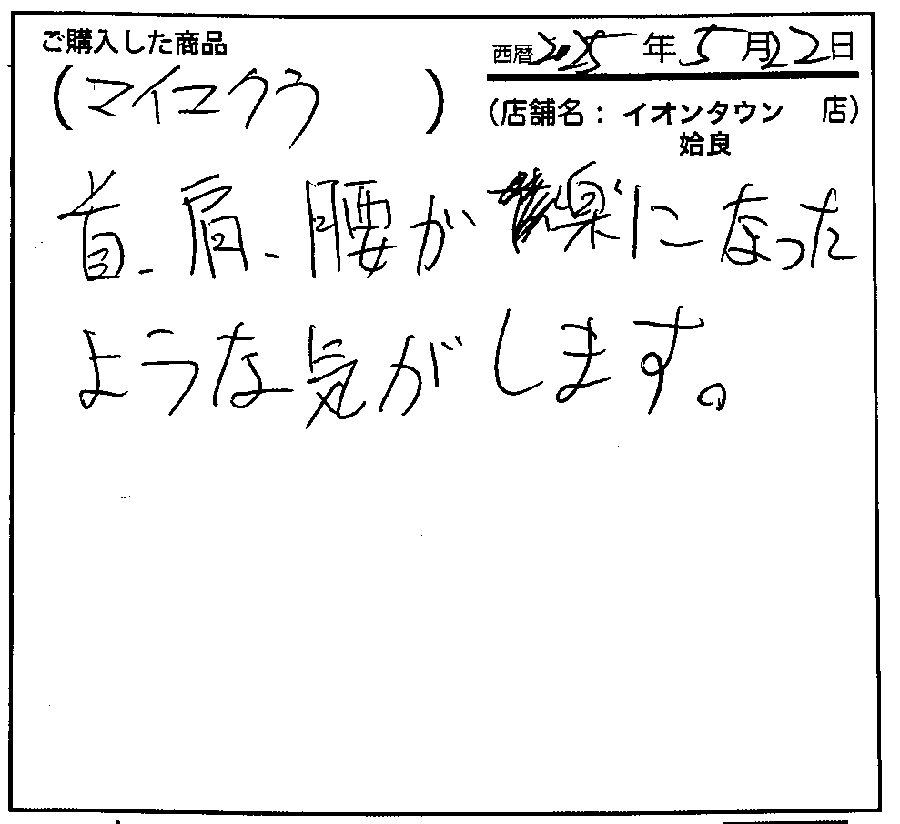 ご購入した商品
西暦2025年5月22日
(マイマクラ)
(店舗名：イオンタウン 店)
姶良
首、肩、腰が楽になった
ような気がします。